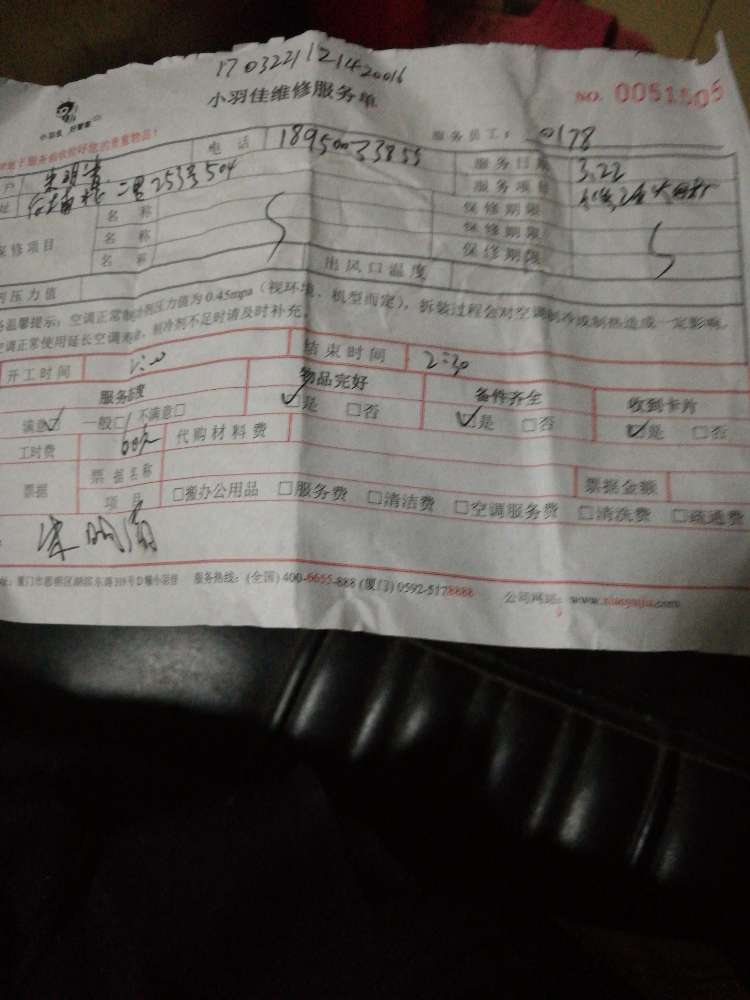 1703221121420016
小羽佳维修服务单
NO. 0051505
小羽佳 好管家
服务员工: 0178
电话 18950033855
服务日期 3.22
户
服务项目
址 二里253号504
保修项目 名称 保修期限
名称 保修期限
名称 保修期限
剂压力值 出风口温度
温馨提示:空调正常制冷剂压力值为0.45mpa(视环境、机型而定),拆装过程会对空调制冷或制热造成一定影响。
空调正常使用延长空调寿命,制冷剂不足时请及时补充。
开工时间 结束时间 2:30
服务态度 物品完好 备件齐全 收到卡片
满意☑ 一般□ 不满意□ ☑是 □否 ☑是 □否 ☑是 □否
工时费 60元 代购材料费
票据 票据名称 票据金额
项目 □搬办公用品 □服务费 □清洁费 □空调服务费 □清洗费 □疏通费
服务热线:(全国)400-6655-888 (厦门)0592-5178888 公司网站:www.xiaoyujia.com